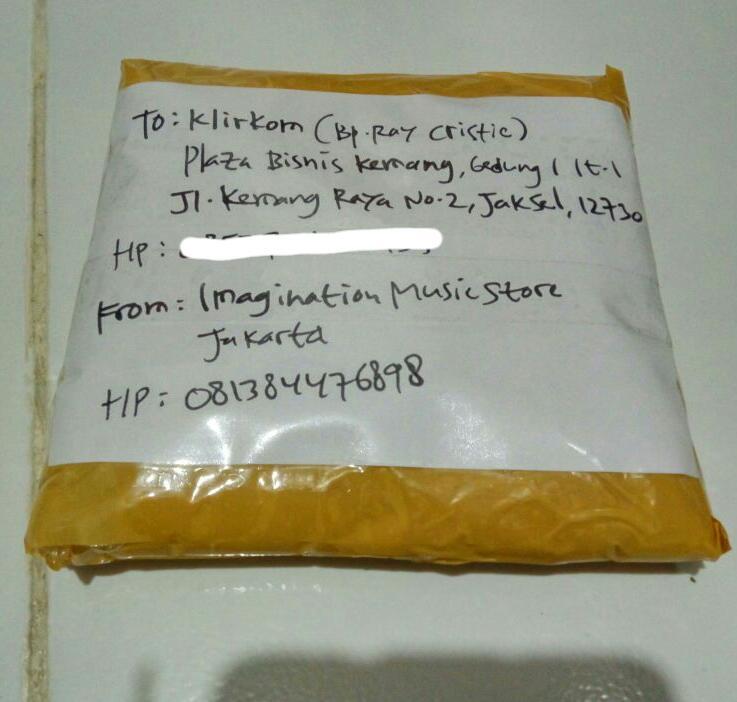 To: Klirkom (Bp. Ray Cristie)
Plaza Bisnis Kemang, Gedung 1 lt.1
Jl. Kemang Raya No.2, Jaksel, 12730
HP:
From: Imagination Music Store
Jakarta
HP: 081384476898